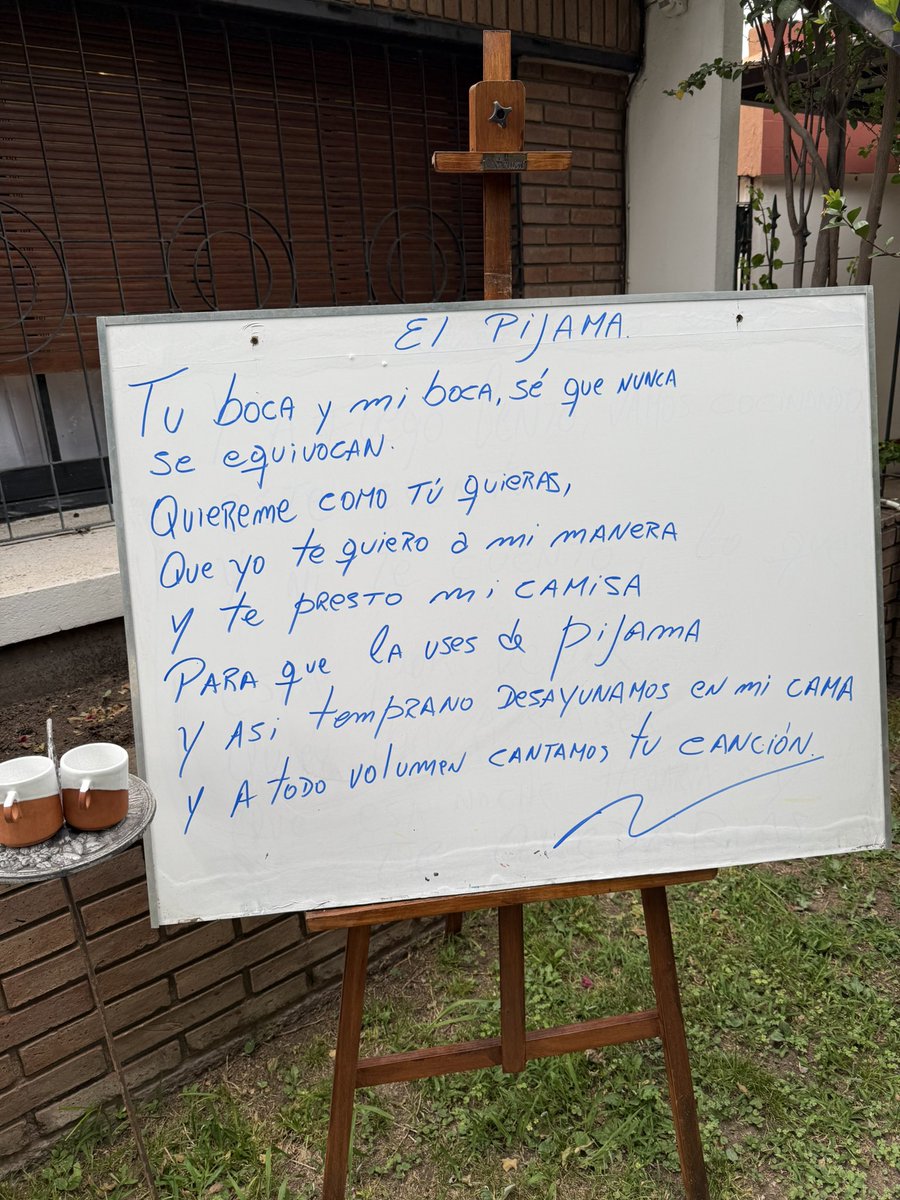 El PIJAMA.
Tu boca y mi boca, sé que nunca
se equivocan.
Quiereme como tú quieras,
Que yo te quiero a mi manera
y te presto mi camisa
Para que la uses de pijama
y asi temprano desayunamos en mi cama
y a todo volumen cantamos tu canción.